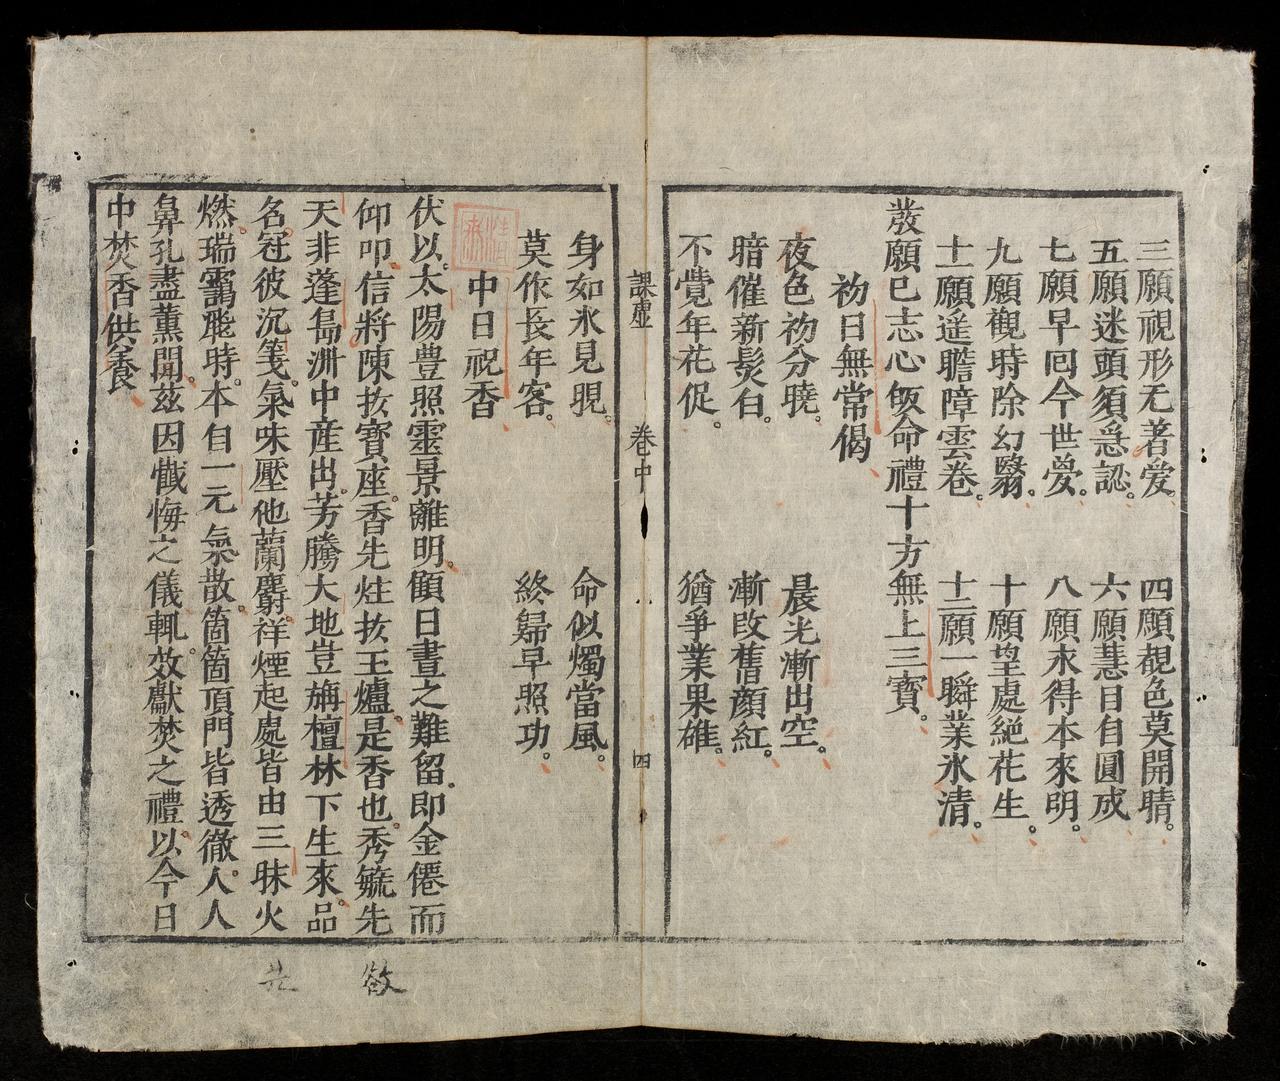 三願視形无著爱。 四願覩色莫開睛。
五願迷頭須急認。 六願慧目自圓成
七願早囘今世夢。 八願求得本來明。
九願觀時除幻翳。 十願望處絕花生。
十一願遥瞻障雲卷。 十二願一瞬業氷清。
發願已志心皈命禮十方無上三寳。
初日無常偈
夜色初分曉。 晨光漸出空。
暗催新髮白。 漸改舊顔紅。
不覺年花促。 猶爭業果碓。
課虛 卷中 四
身如氷見晛。 命似燭當風。
莫作長年客。 終歸早照功。
中日祝香
伏以。太陽豊照靈景離明。顧日晝之難留。即金僊而
仰叩。信將陳扵寳座。香先炷扵玉爐。是香也。秀毓先
天非蓬島洲中産出。芳騰大地豈旃檀林下生來。品
名冠彼沉箋。氣味壓他蘭麝。祥煙起處皆由三昧火
燃。瑞靄飛時。本自一元氣散。箇箇頂門皆透徹。人人
鼻孔盡薰開。兹因懺悔之儀。輒效獻焚之禮。以今日
中焚香供養